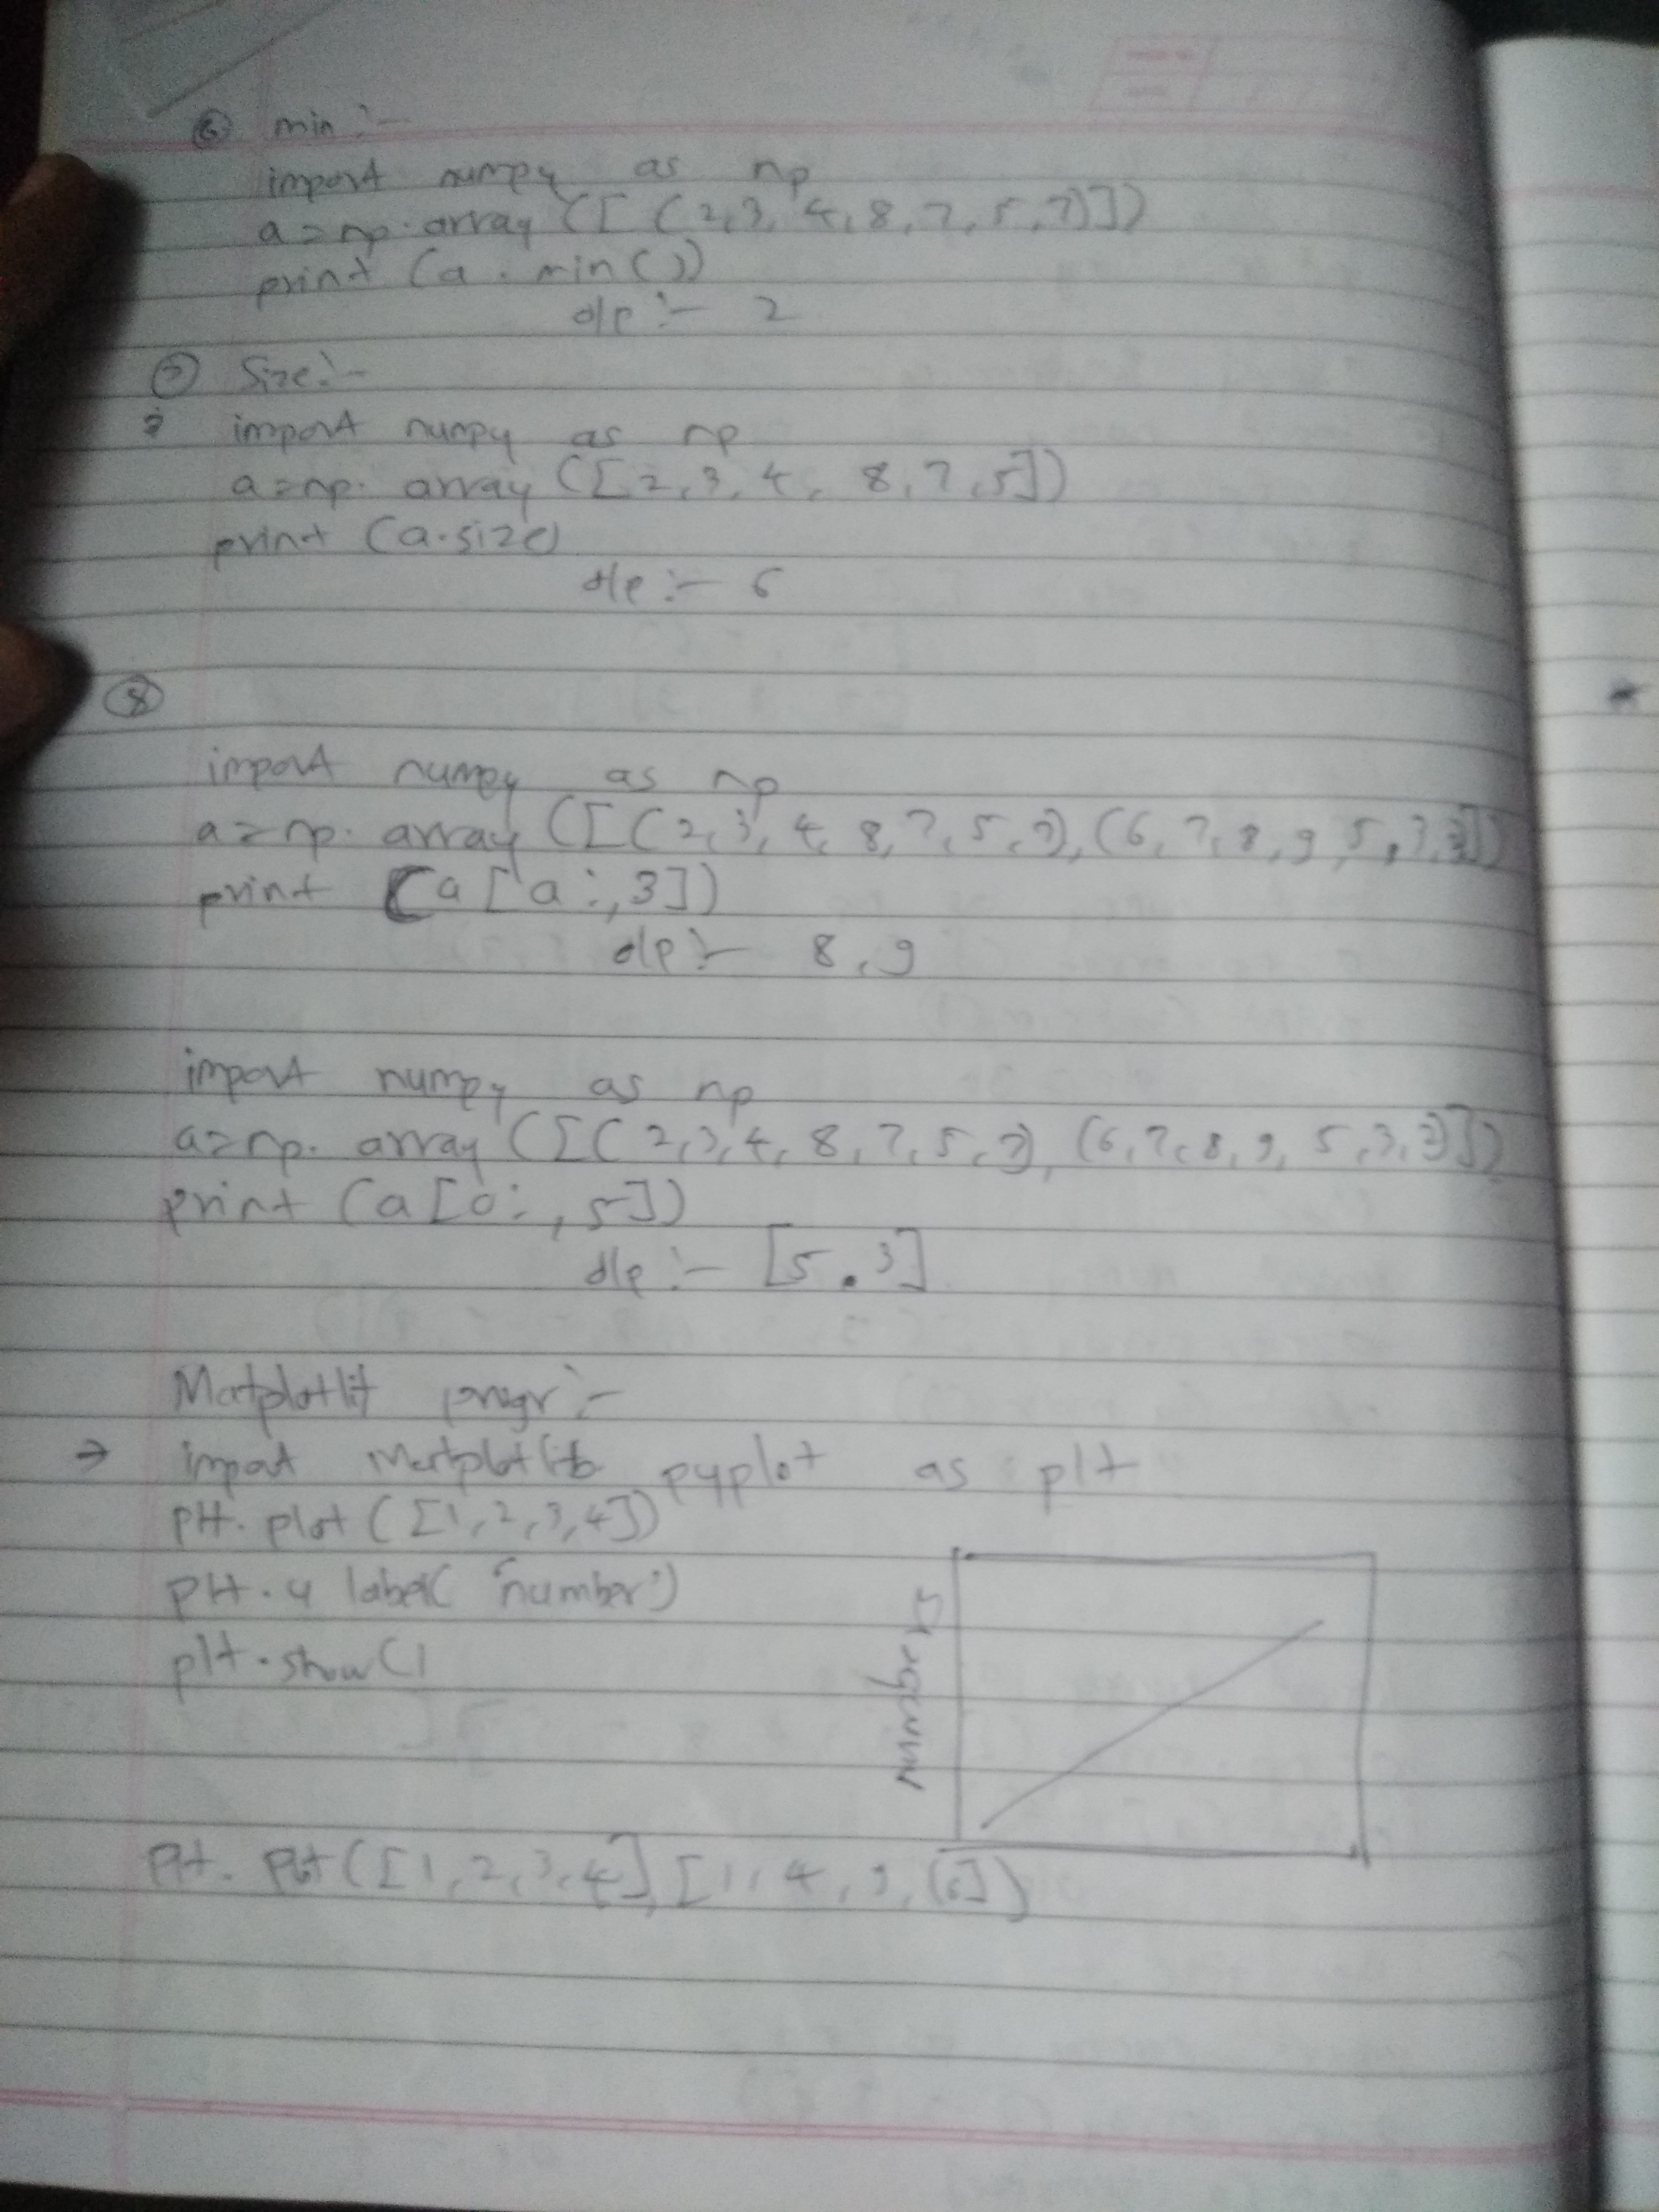 ⑥ min :-
import numpy as np
a = np. array ([ (2,3, 4, 8, 7, 5, 7)])
print (a . min ())
o/p :- 2
⑦ Size :-
import numpy as np
a = np. array ([2, 3, 4, 8, 7, 5])
print (a.size)
o/p :- 6
⑧
import numpy as np
a = np. array ([(2, 3, 4, 8, 7, 5, 7), (6, 7, 8, 9, 5, 3, 3)])
print (a [a :, 3])
o/p :- 8, 9
import numpy as np
a = np. array ([(2,3,4, 8, 7, 5, 7), (6, 7, 8, 9, 5, 3, 3)])
print (a [0 : , 5])
o/p :- [5 . 3]
Matplotlit progr :-
→ import Matplotlib pyplot as plt
plt. plot ([1, 2, 3, 4])
plt. y label( 'number')
plt . show ()
numbers
plt. plot ([1, 2, 3, 4], [1, 4, 9, 16])